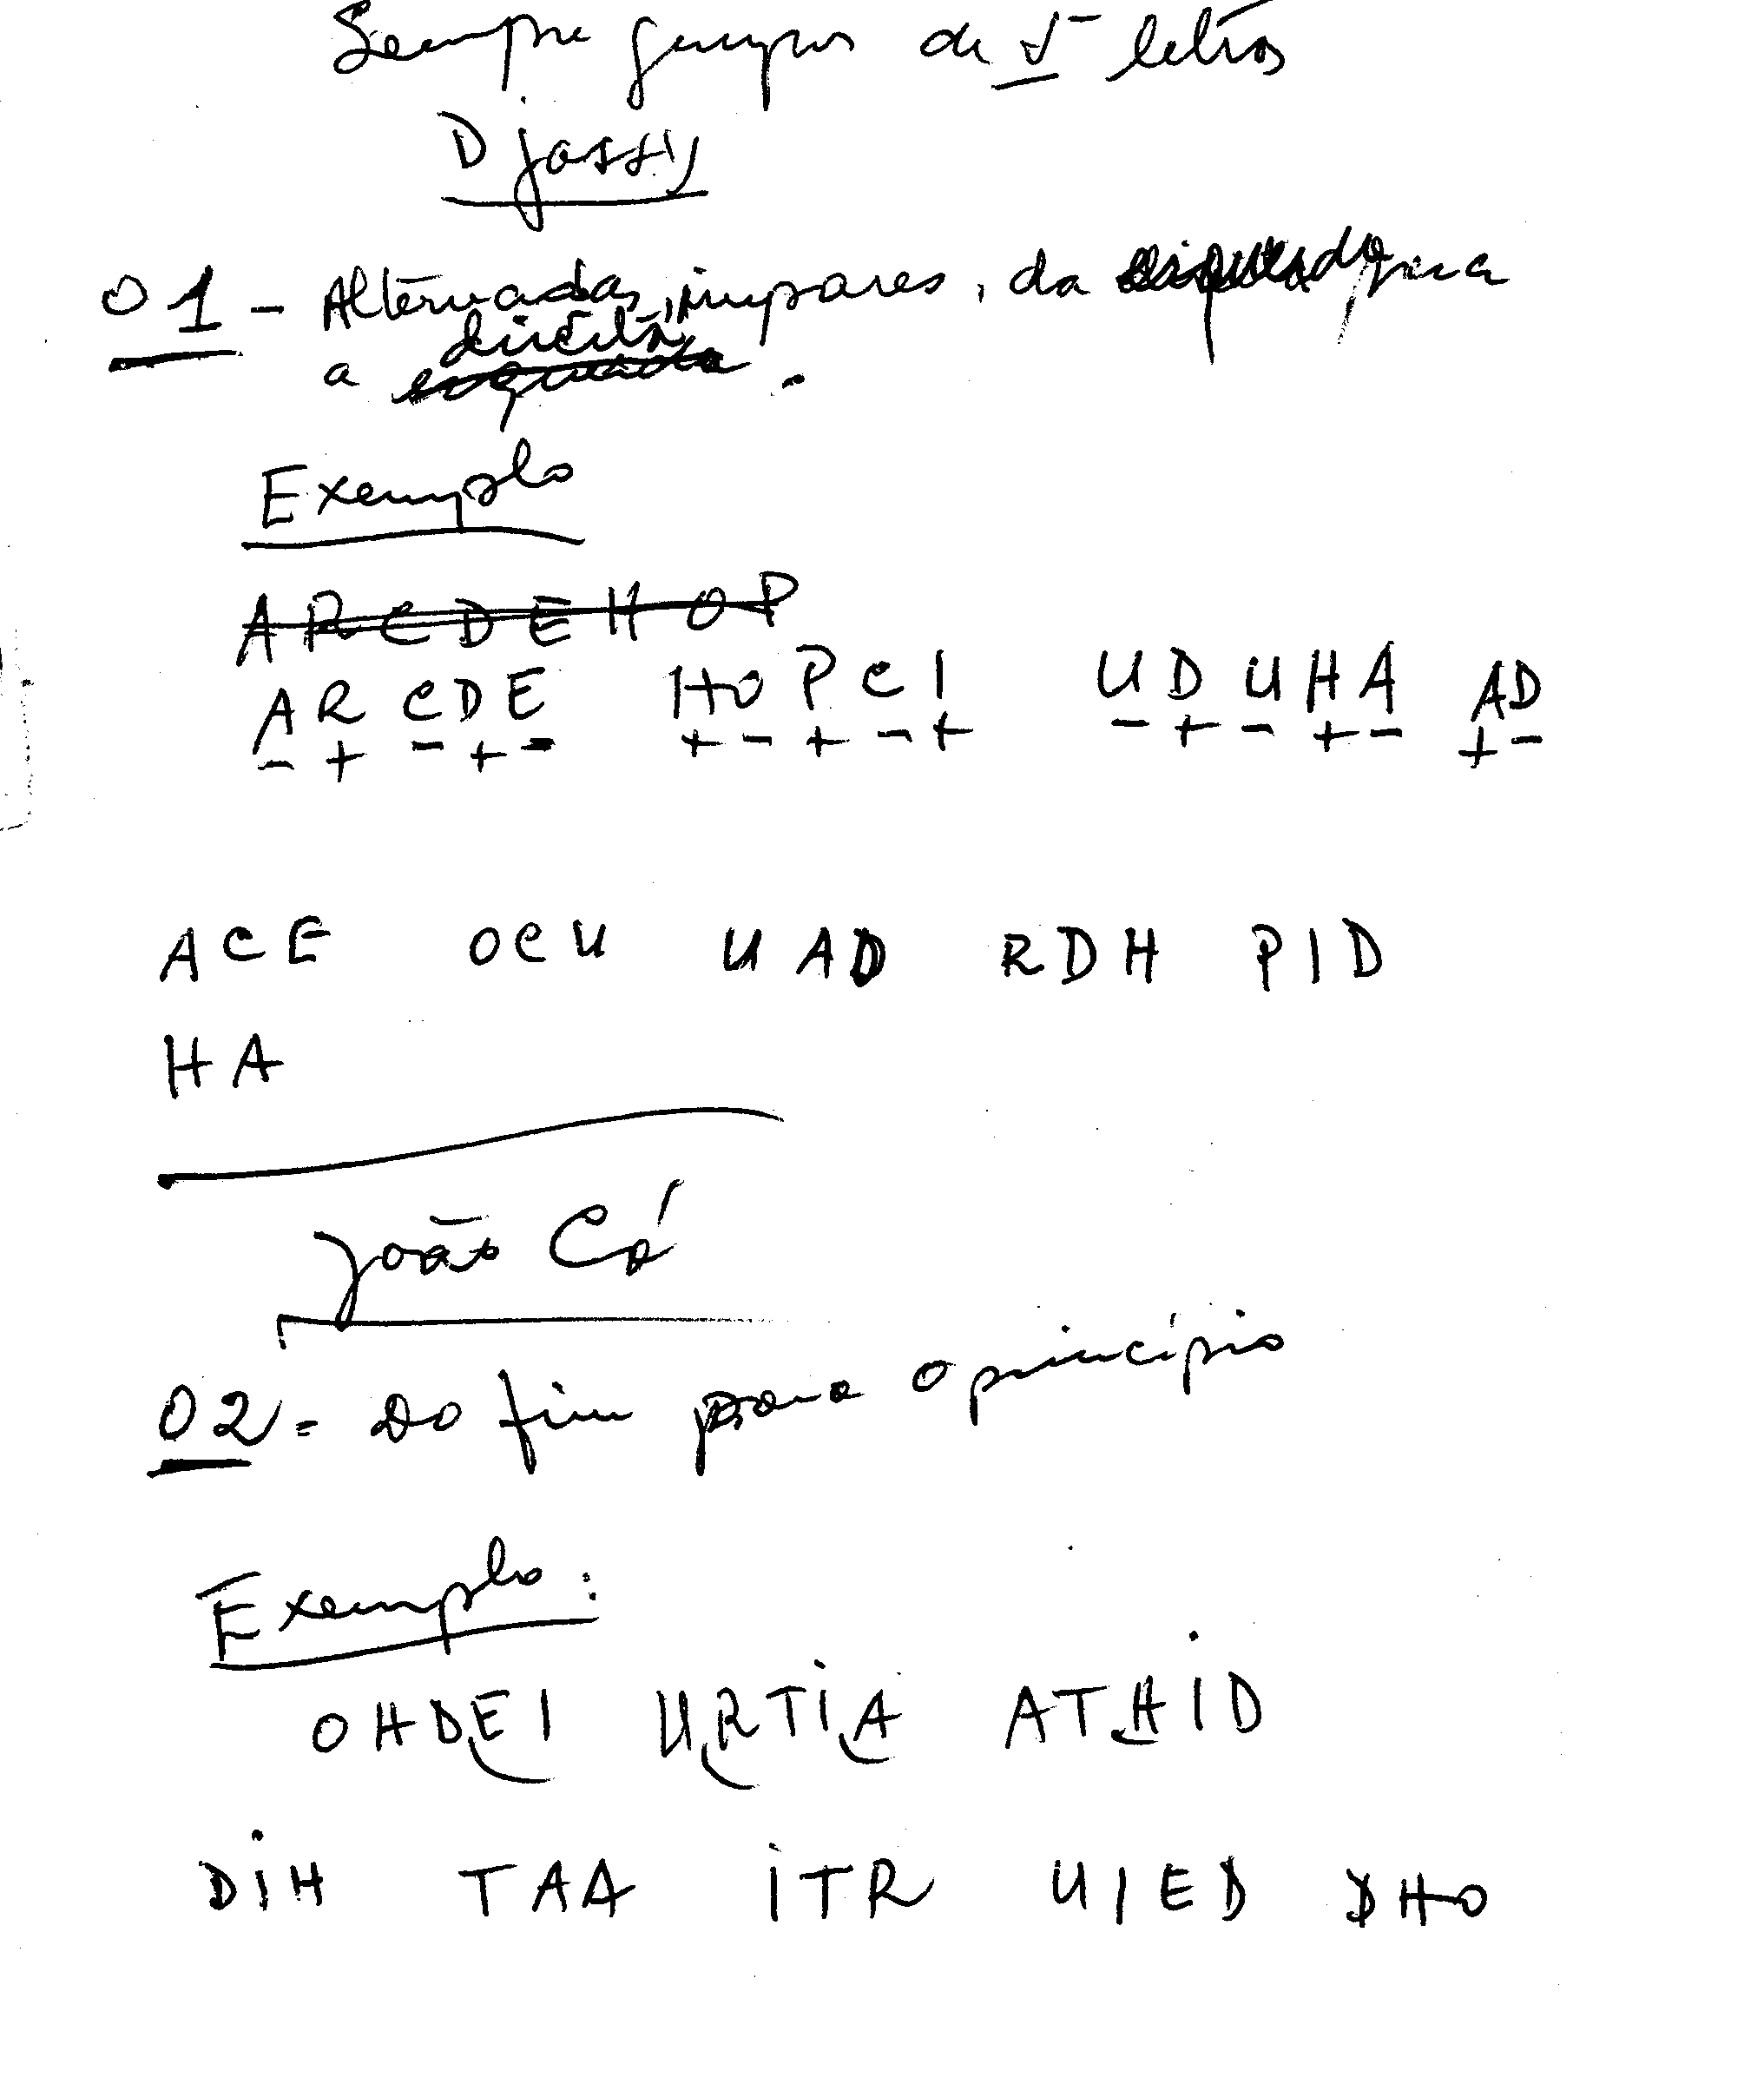 Sempre grupos de 5 letras
Djassy
01 - Alternadas, impares, da esquerda para
a direita.
Exemplo
ARCDEHOP
ARCDE HOPCI UDUHA AD
- + - + - + - + - + - + - + - + -
ACE OCU UAD RDH PID
HA
João Cá
02 - Do fim para o princípio
Exemplo:
OHDEI URTIA ATHID
DIH TAA ITR UIED DHO